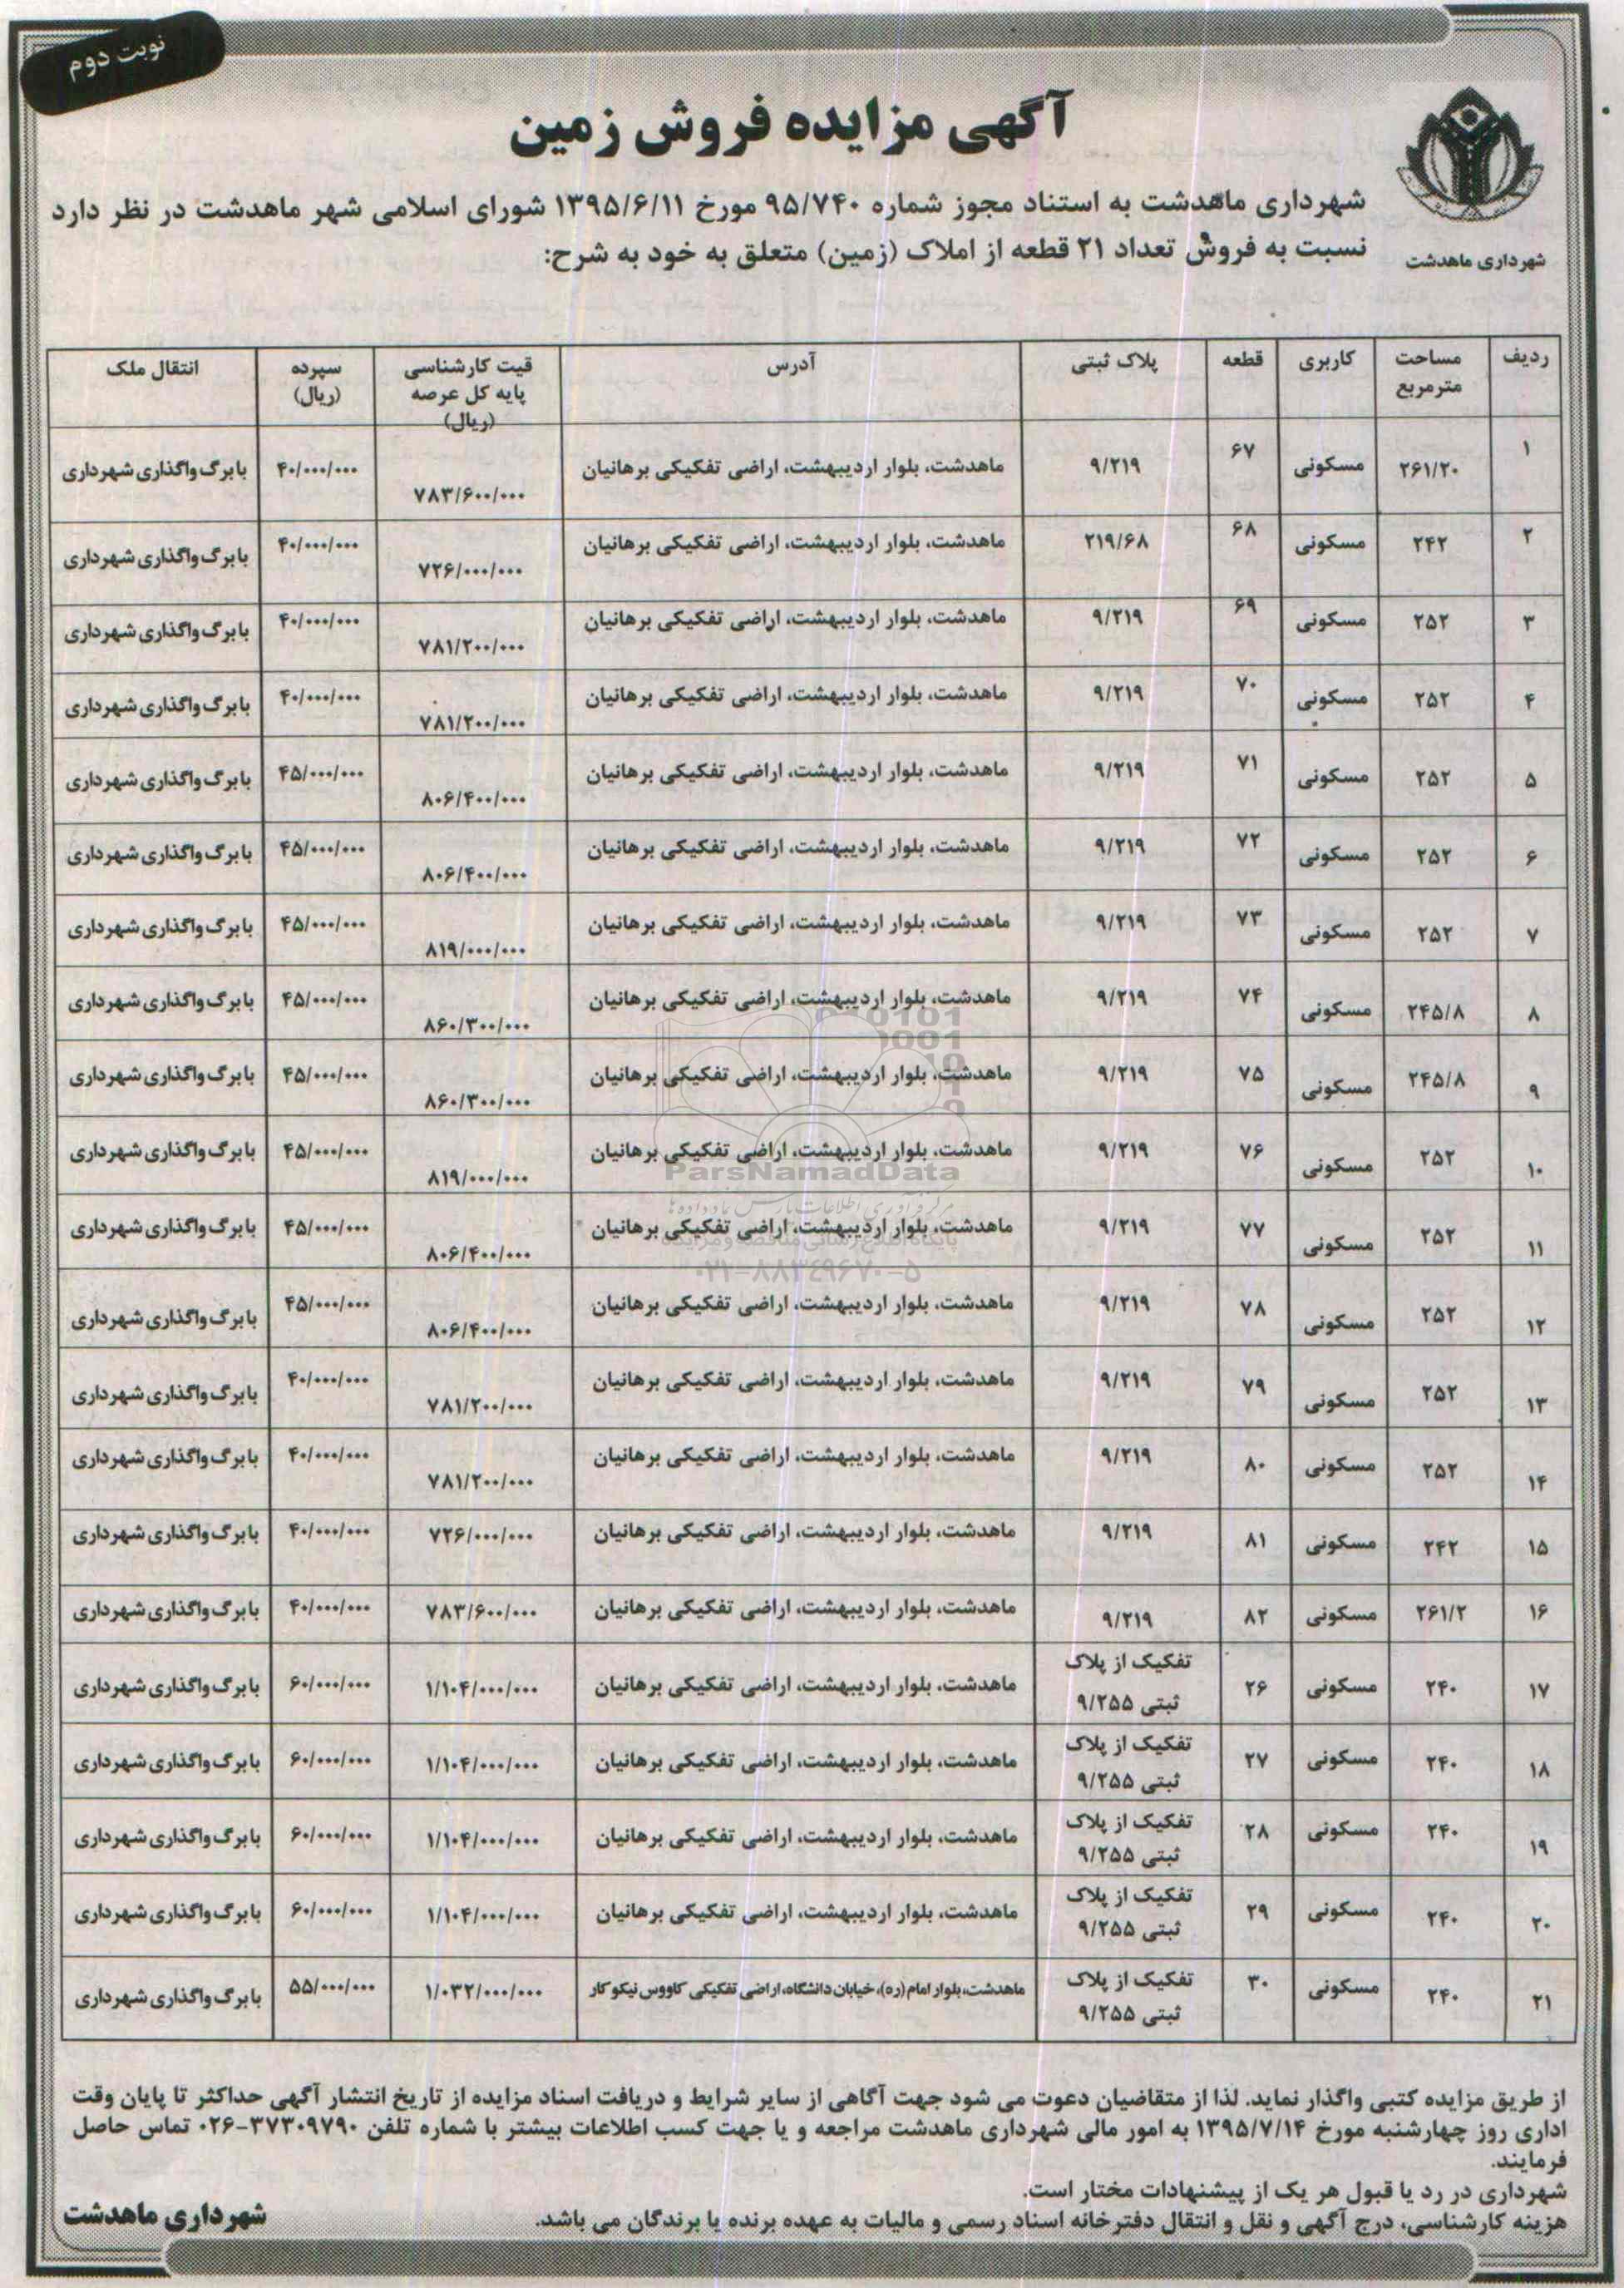 نوبت دوم
آگهی مزایده فروش زمین
شهرداری ماهدشت
شهرداری ماهدشت به استناد مجوز شماره ۹۵/۷۴۰ مورخ ۱۳۹۵/۶/۱۱ شورای اسلامی شهر ماهدشت در نظر دارد
نسبت به فروش تعداد ۲۱ قطعه از املاک (زمین) متعلق به خود به شرح:
ردیف مساحت مترمربع کاربری قطعه پلاک ثبتی آدرس قیت کارشناسی پایه کل عرصه (ریال) سپرده (ریال) انتقال ملک
۱ ۲۶۱/۲۰ مسکونی ۶۷ ۹/۲۱۹ ماهدشت، بلوار اردیبهشت، اراضی تفکیکی برهانیان ۷۸۳/۶۰۰/۰۰۰ ۴۰/۰۰۰/۰۰۰ با برگ واگذاری شهرداری
۲ ۲۴۲ مسکونی ۶۸ ۲۱۹/۶۸ ماهدشت، بلوار اردیبهشت، اراضی تفکیکی برهانیان ۷۲۶/۰۰۰/۰۰۰ ۴۰/۰۰۰/۰۰۰ با برگ واگذاری شهرداری
۳ ۲۵۲ مسکونی ۶۹ ۹/۲۱۹ ماهدشت، بلوار اردیبهشت، اراضی تفکیکی برهانیان ۷۸۱/۲۰۰/۰۰۰ ۴۰/۰۰۰/۰۰۰ با برگ واگذاری شهرداری
۴ ۲۵۲ مسکونی ۷۰ ۹/۲۱۹ ماهدشت، بلوار اردیبهشت، اراضی تفکیکی برهانیان ۷۸۱/۲۰۰/۰۰۰ ۴۰/۰۰۰/۰۰۰ با برگ واگذاری شهرداری
۵ ۲۵۲ مسکونی ۷۱ ۹/۲۱۹ ماهدشت، بلوار اردیبهشت، اراضی تفکیکی برهانیان ۸۰۶/۴۰۰/۰۰۰ ۴۵/۰۰۰/۰۰۰ با برگ واگذاری شهرداری
۶ ۲۵۲ مسکونی ۷۲ ۹/۲۱۹ ماهدشت، بلوار اردیبهشت، اراضی تفکیکی برهانیان ۸۰۶/۴۰۰/۰۰۰ ۴۵/۰۰۰/۰۰۰ با برگ واگذاری شهرداری
۷ ۲۵۲ مسکونی ۷۳ ۹/۲۱۹ ماهدشت، بلوار اردیبهشت، اراضی تفکیکی برهانیان ۸۱۹/۰۰۰/۰۰۰ ۴۵/۰۰۰/۰۰۰ با برگ واگذاری شهرداری
۸ ۲۴۵/۸ مسکونی ۷۴ ۹/۲۱۹ ماهدشت، بلوار اردیبهشت، اراضی تفکیکی برهانیان ۸۶۰/۳۰۰/۰۰۰ ۴۵/۰۰۰/۰۰۰ با برگ واگذاری شهرداری
۹ ۲۴۵/۸ مسکونی ۷۵ ۹/۲۱۹ ماهدشت، بلوار اردیبهشت، اراضی تفکیکی برهانیان ۸۶۰/۳۰۰/۰۰۰ ۴۵/۰۰۰/۰۰۰ با برگ واگذاری شهرداری
۱۰ ۲۵۲ مسکونی ۷۶ ۹/۲۱۹ ماهدشت، بلوار اردیبهشت، اراضی تفکیکی برهانیان ۸۱۹/۰۰۰/۰۰۰ ۴۵/۰۰۰/۰۰۰ با برگ واگذاری شهرداری
ParsNamadData
۱۱ ۲۵۲ مسکونی ۷۷ ۹/۲۱۹ ماهدشت، بلوار اردیبهشت، اراضی تفکیکی برهانیان ۸۰۶/۴۰۰/۰۰۰ ۴۵/۰۰۰/۰۰۰ با برگ واگذاری شهرداری
۰۲۱-۸۸۳۴۹۶۷۰-۵
۱۲ ۲۵۲ مسکونی ۷۸ ۹/۲۱۹ ماهدشت، بلوار اردیبهشت، اراضی تفکیکی برهانیان ۸۰۶/۴۰۰/۰۰۰ ۴۵/۰۰۰/۰۰۰ با برگ واگذاری شهرداری
۱۳ ۲۵۲ مسکونی ۷۹ ۹/۲۱۹ ماهدشت، بلوار اردیبهشت، اراضی تفکیکی برهانیان ۷۸۱/۲۰۰/۰۰۰ ۴۰/۰۰۰/۰۰۰ با برگ واگذاری شهرداری
۱۴ ۲۵۲ مسکونی ۸۰ ۹/۲۱۹ ماهدشت، بلوار اردیبهشت، اراضی تفکیکی برهانیان ۷۸۱/۲۰۰/۰۰۰ ۴۰/۰۰۰/۰۰۰ با برگ واگذاری شهرداری
۱۵ ۲۴۲ مسکونی ۸۱ ۹/۲۱۹ ماهدشت، بلوار اردیبهشت، اراضی تفکیکی برهانیان ۷۲۶/۰۰۰/۰۰۰ ۴۰/۰۰۰/۰۰۰ با برگ واگذاری شهرداری
۱۶ ۲۶۱/۲ مسکونی ۸۲ ۹/۲۱۹ ماهدشت، بلوار اردیبهشت، اراضی تفکیکی برهانیان ۷۸۳/۶۰۰/۰۰۰ ۴۰/۰۰۰/۰۰۰ با برگ واگذاری شهرداری
۱۷ ۲۴۰ مسکونی ۲۶ تفکیک از پلاک ثبتی ۹/۲۵۵ ماهدشت، بلوار اردیبهشت، اراضی تفکیکی برهانیان ۱/۱۰۴/۰۰۰/۰۰۰ ۶۰/۰۰۰/۰۰۰ با برگ واگذاری شهرداری
۱۸ ۲۴۰ مسکونی ۲۷ تفکیک از پلاک ثبتی ۹/۲۵۵ ماهدشت، بلوار اردیبهشت، اراضی تفکیکی برهانیان ۱/۱۰۴/۰۰۰/۰۰۰ ۶۰/۰۰۰/۰۰۰ با برگ واگذاری شهرداری
۱۹ ۲۴۰ مسکونی ۲۸ تفکیک از پلاک ثبتی ۹/۲۵۵ ماهدشت، بلوار اردیبهشت، اراضی تفکیکی برهانیان ۱/۱۰۴/۰۰۰/۰۰۰ ۶۰/۰۰۰/۰۰۰ با برگ واگذاری شهرداری
۲۰ ۲۴۰ مسکونی ۲۹ تفکیک از پلاک ثبتی ۹/۲۵۵ ماهدشت، بلوار اردیبهشت، اراضی تفکیکی برهانیان ۱/۱۰۴/۰۰۰/۰۰۰ ۶۰/۰۰۰/۰۰۰ با برگ واگذاری شهرداری
۲۱ ۲۴۰ مسکونی ۳۰ تفکیک از پلاک ثبتی ۹/۲۵۵ ماهدشت، بلوار امام (ره)، خیابان دانشگاه، اراضی تفکیکی کاووس نیکو کار ۱/۰۳۲/۰۰۰/۰۰۰ ۵۵/۰۰۰/۰۰۰ با برگ واگذاری شهرداری
از طریق مزایده کتبی واگذار نماید. لذا از متقاضیان دعوت می شود جهت آگاهی از سایر شرایط و دریافت اسناد مزایده از تاریخ انتشار آگهی حداکثر تا پایان وقت
اداری روز چهارشنبه مورخ ۱۳۹۵/۷/۱۴ به امور مالی شهرداری ماهدشت مراجعه و یا جهت کسب اطلاعات بیشتر با شماره تلفن ۳۷۳۰۹۷۹۰-۰۲۶ تماس حاصل
فرمایند.
شهرداری در رد یا قبول هر یک از پیشنهادات مختار است.
هزینه کارشناسی، درج آگهی و نقل و انتقال دفترخانه اسناد رسمی و مالیات به عهده برنده یا برندگان می باشد.
شهرداری ماهدشت